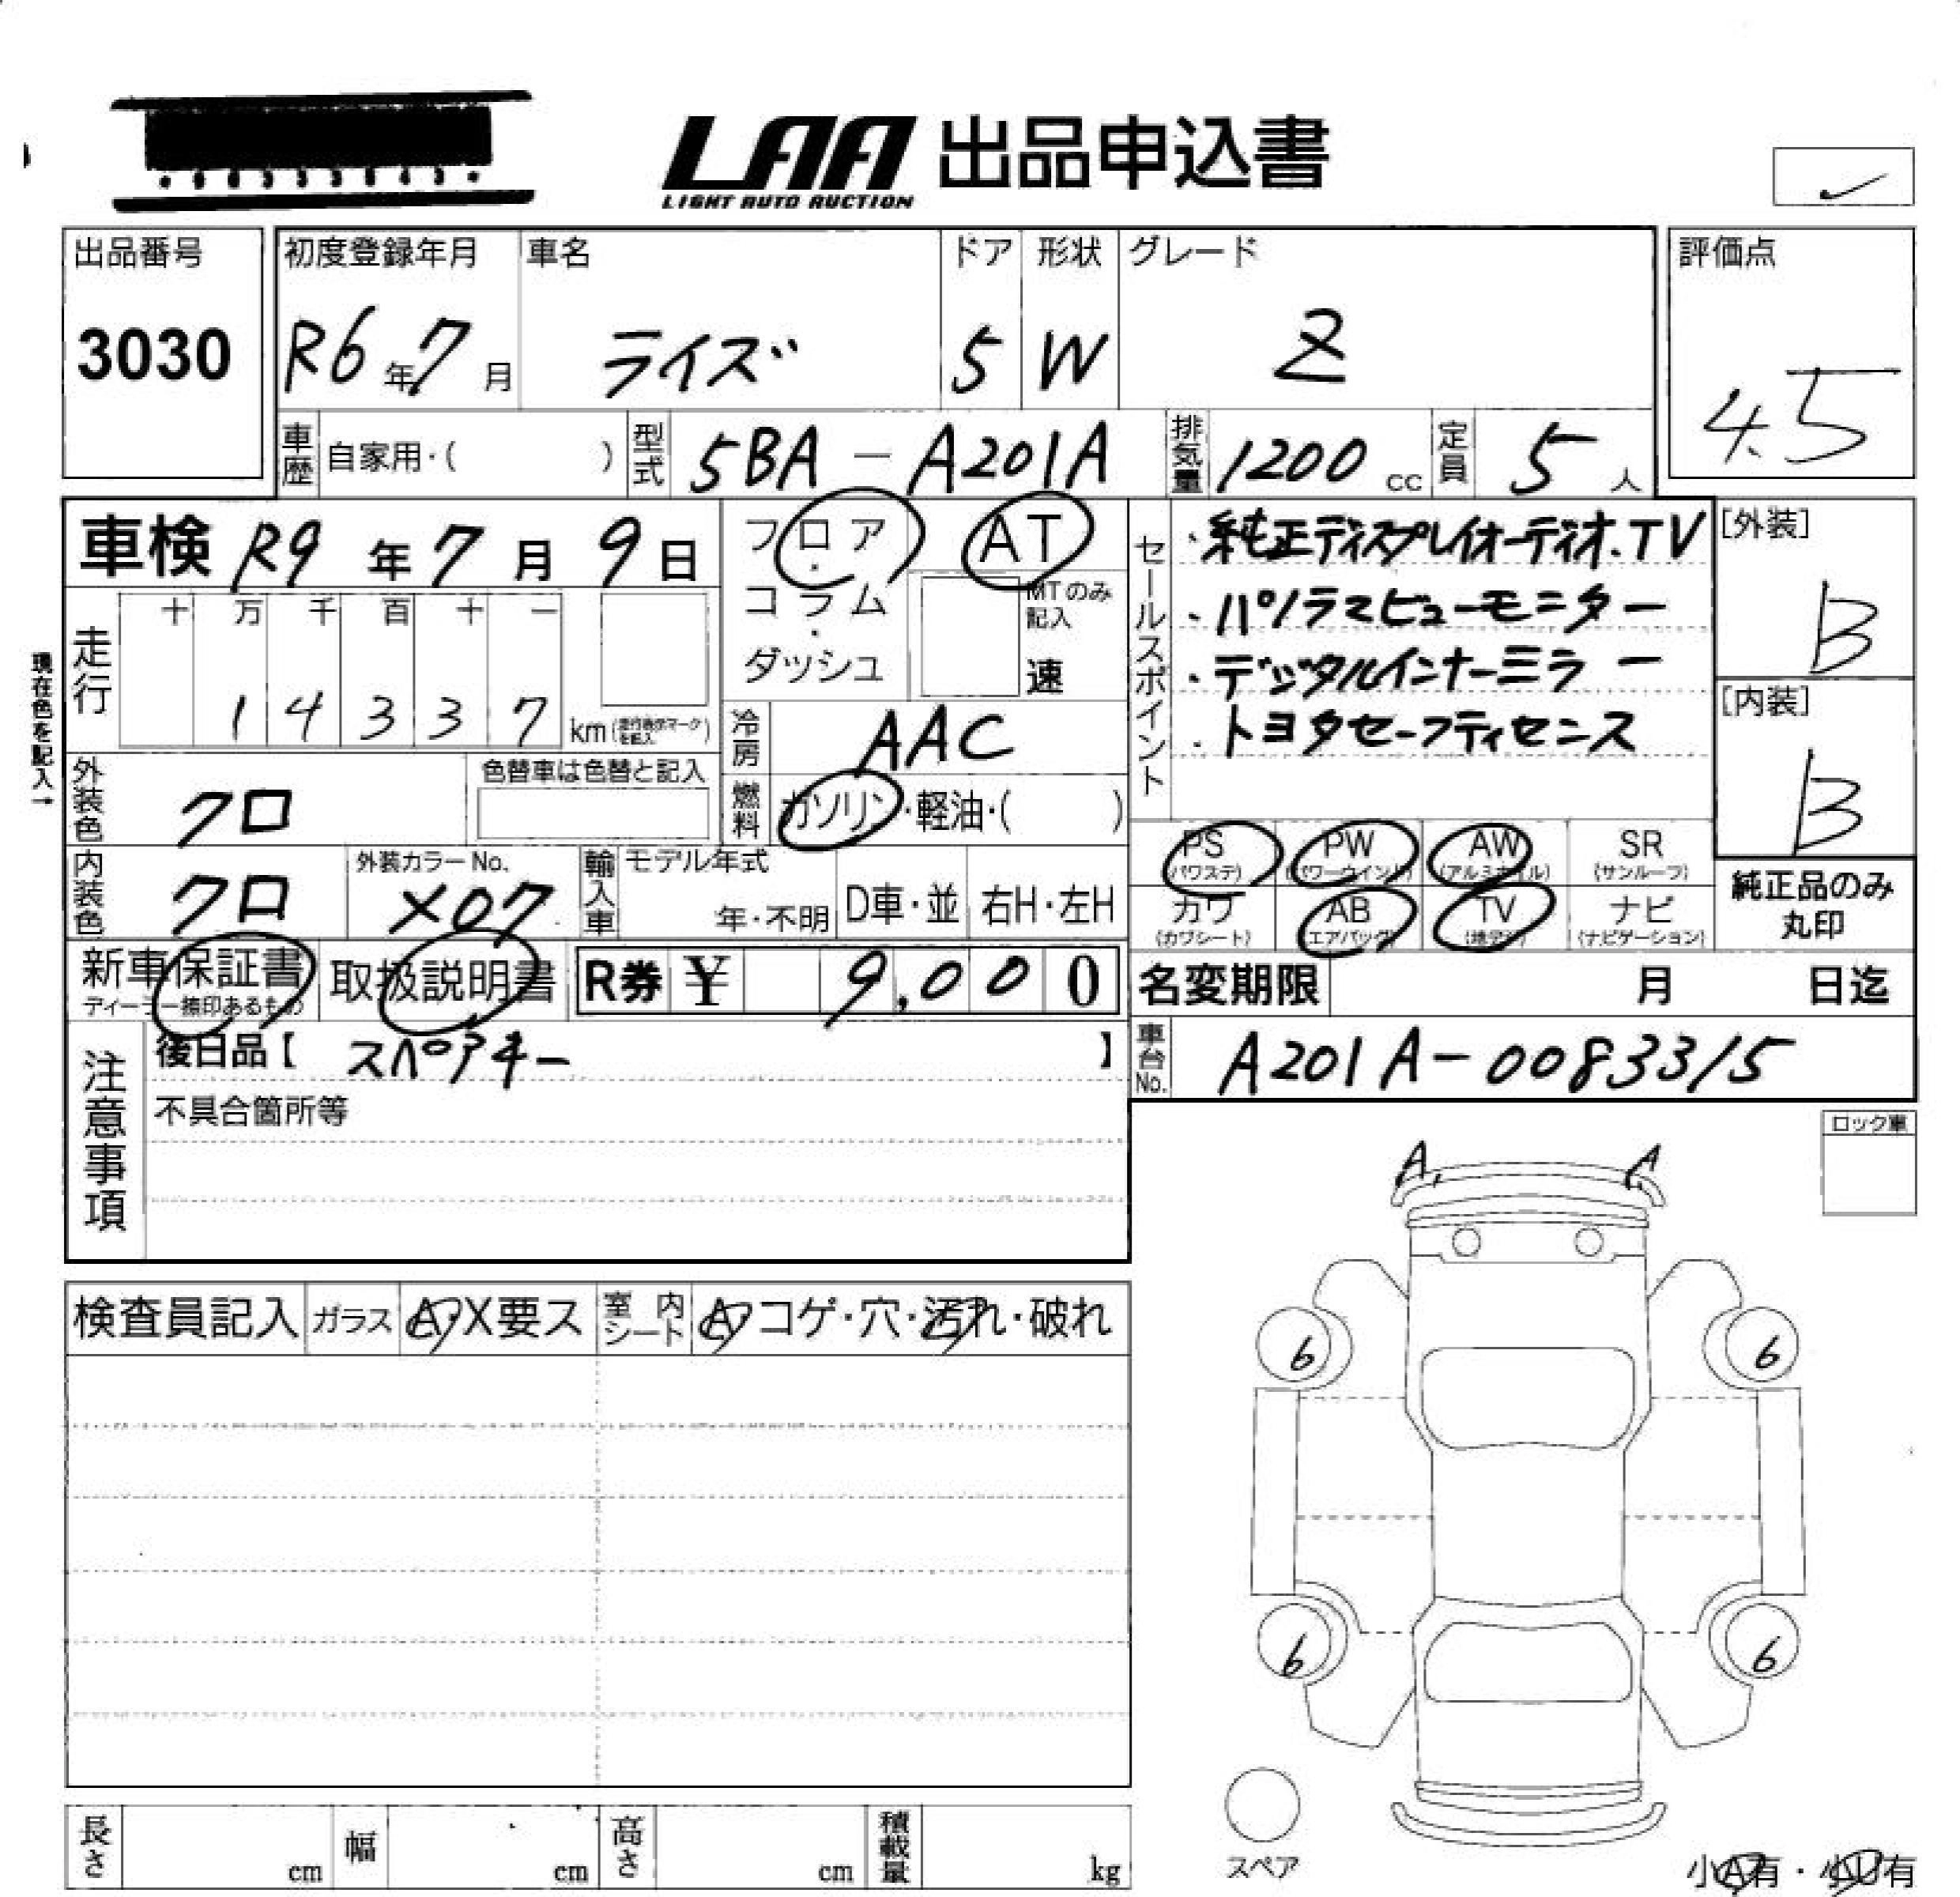 LAA 出品申込書
LIGHT AUTO AUCTION
出品番号
3030
初度登録年月
R6年7月
車名
ライズ
ドア
5
形状
W
グレード
Z
評価点
4.5
車歴
自家用・( )
型式
5BA-A201A
排気量
1200 cc
定員
5人
車検 R9年7月9日
フロア・コラム・ダッシュ
AT
MTのみ記入
速
セールスポイント
・純正ディスプレイオーディオ.TV
・パノラマビューモニター
・デジタルインナーミラー
・トヨタセーフティセンス
[外装]
B
[内装]
B
現在色を記入→
走行
十 万 千 百 十 一
1 4 3 3 7 km
冷房
AAC
外装色
クロ
色替車は色替と記入
燃料
ガソリン・軽油・( )
PS
(パワステ)
PW
(パワーウインド)
AW
(アルミホイル)
SR
(サンルーフ)
内装色
クロ
外装カラーNo.
X07
輸入車
モデル年式
年・不明
D車・並
右H・左H
カワ
(カワシート)
AB
(エアバッグ)
TV
ナビ
(ナビゲーション)
純正品のみ
丸印
新車保証書
ディーラー捺印あるもの
取扱説明書
R券 ¥ 9,000
名変期限 月 日迄
注意事項
後日品【 スペアキー 】
車台No.
A201A-0083315
不具合箇所等
ロック車
A A
検査員記入
ガラス
A・X要ス
室内シート
A コゲ・穴・汚れ・破れ
6 6
6 6
スペア
長さ cm
幅 cm
高さ cm
積載量 kg
小A有・小U有